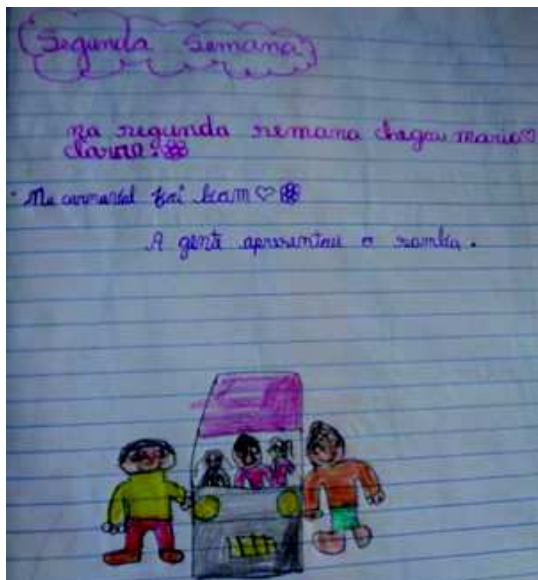 Segunda Semana
na segunda semana chegou maria
clara
Meu carnaval foi bom
A gente apresentou o samba.